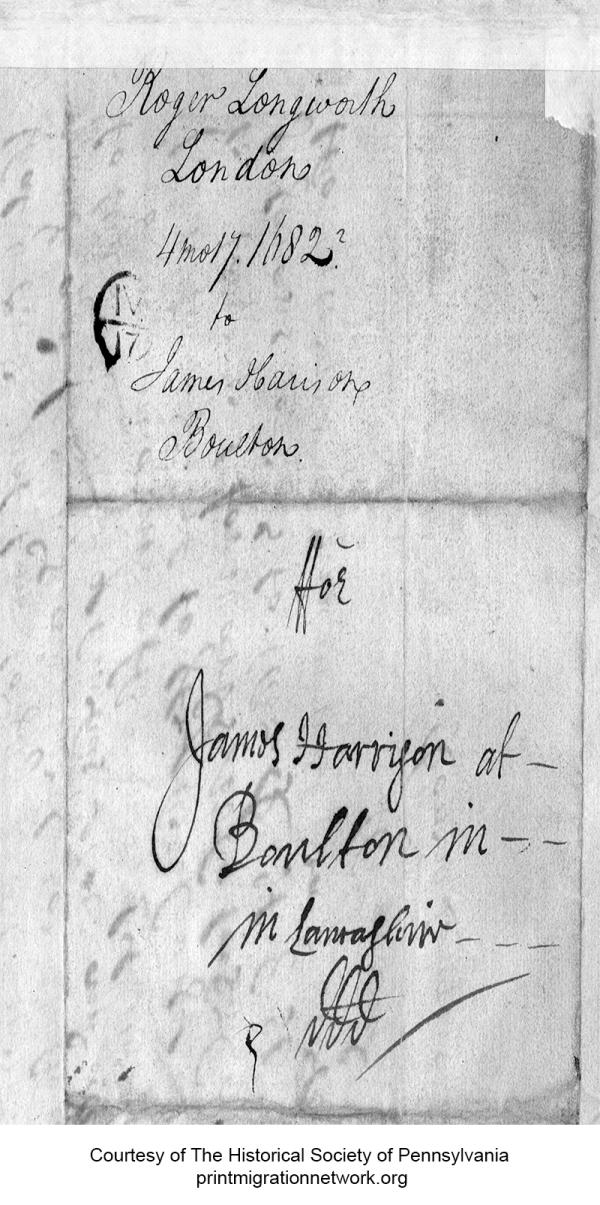 Roger Longworth
London
4mo17.1682?
to
IV
17
James Harrison
Boulton.
ffor
James Harrison at -
Boulton in - -
in Lancashire - - -
Courtesy of The Historical Society of Pennsylvania
printmigrationnetwork.org